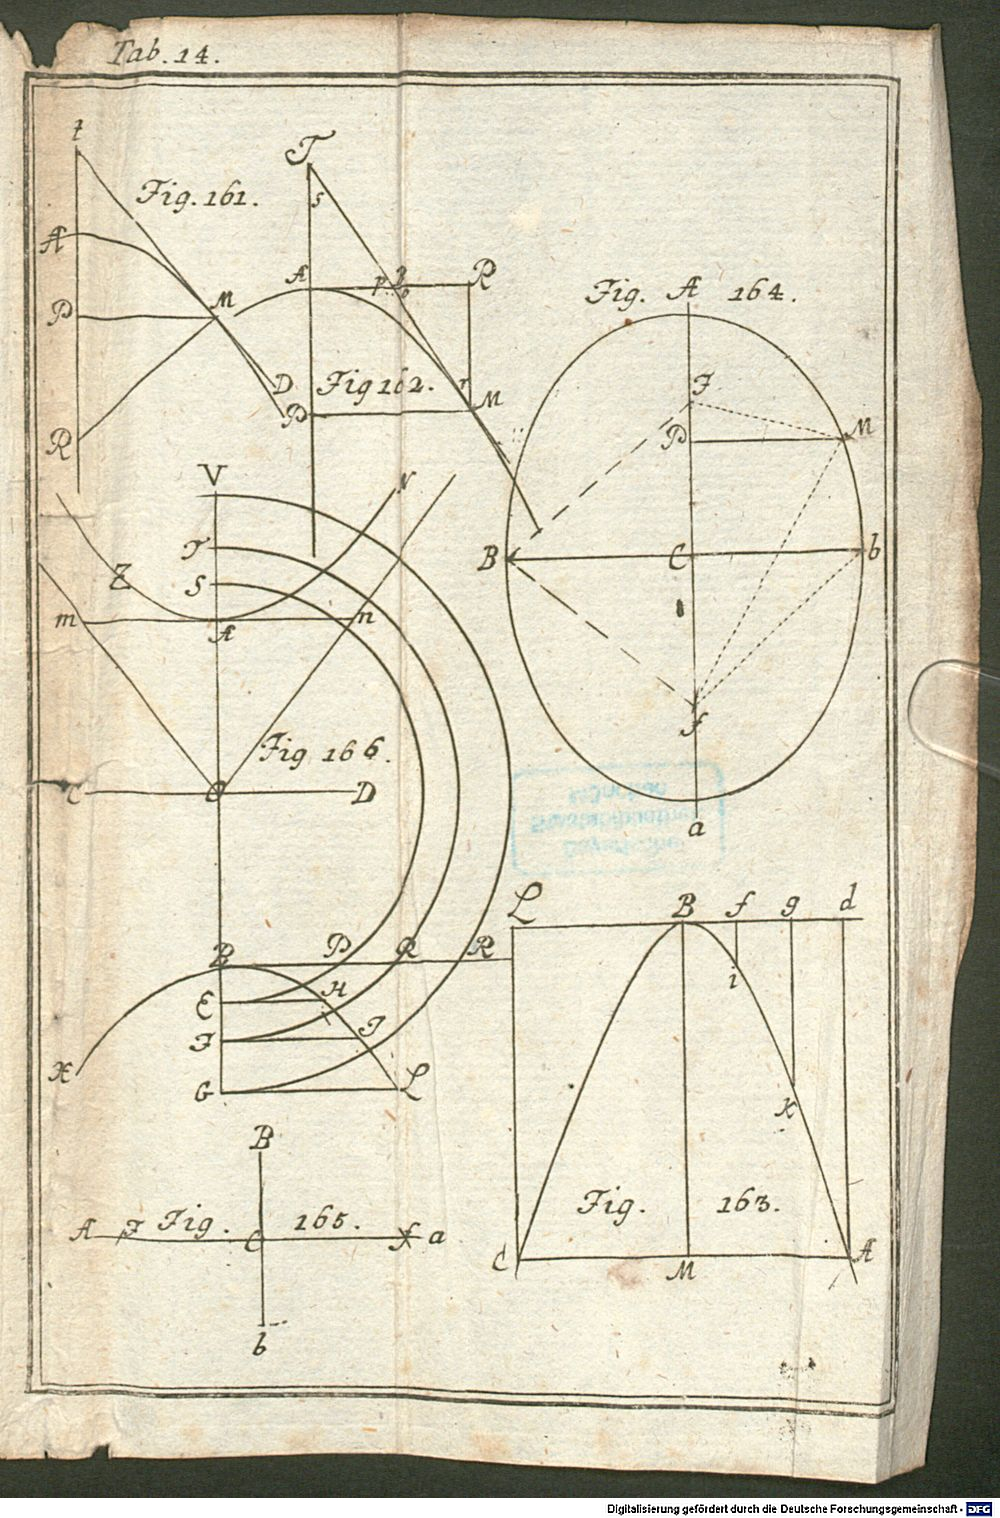 Tab. 14.
t
Fig. 161.
A
P
M
D
R
T
s
A
p
R
r
Fig 162.
P
M
Fig. A 164.
F
P
M
B
C
b
f
a
V
N
T
S
Z
m
A
n
Fig 166.
C
D
B
P
Q
R
E
H
F
I
X
G
L
L
B
f
g
d
i
K
Fig. 163.
C
M
A
B
A
F
Fig. 165.
C
f
a
b
Bayerische
Staatsbibliothek
München
Digitalisierung gefördert durch die Deutsche Forschungsgemeinschaft - DFG